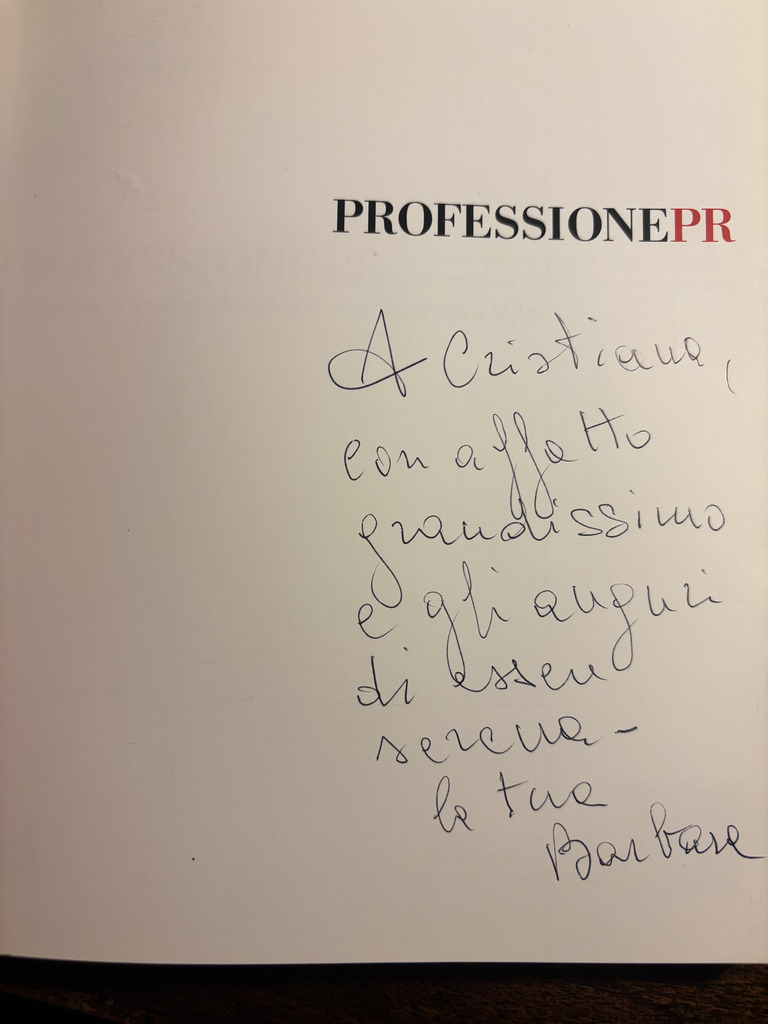 PROFESSIONEPR
A Cristiana,
con affetto
grandissimo
e gli auguri
di essere
serena -
la tua
Barbara